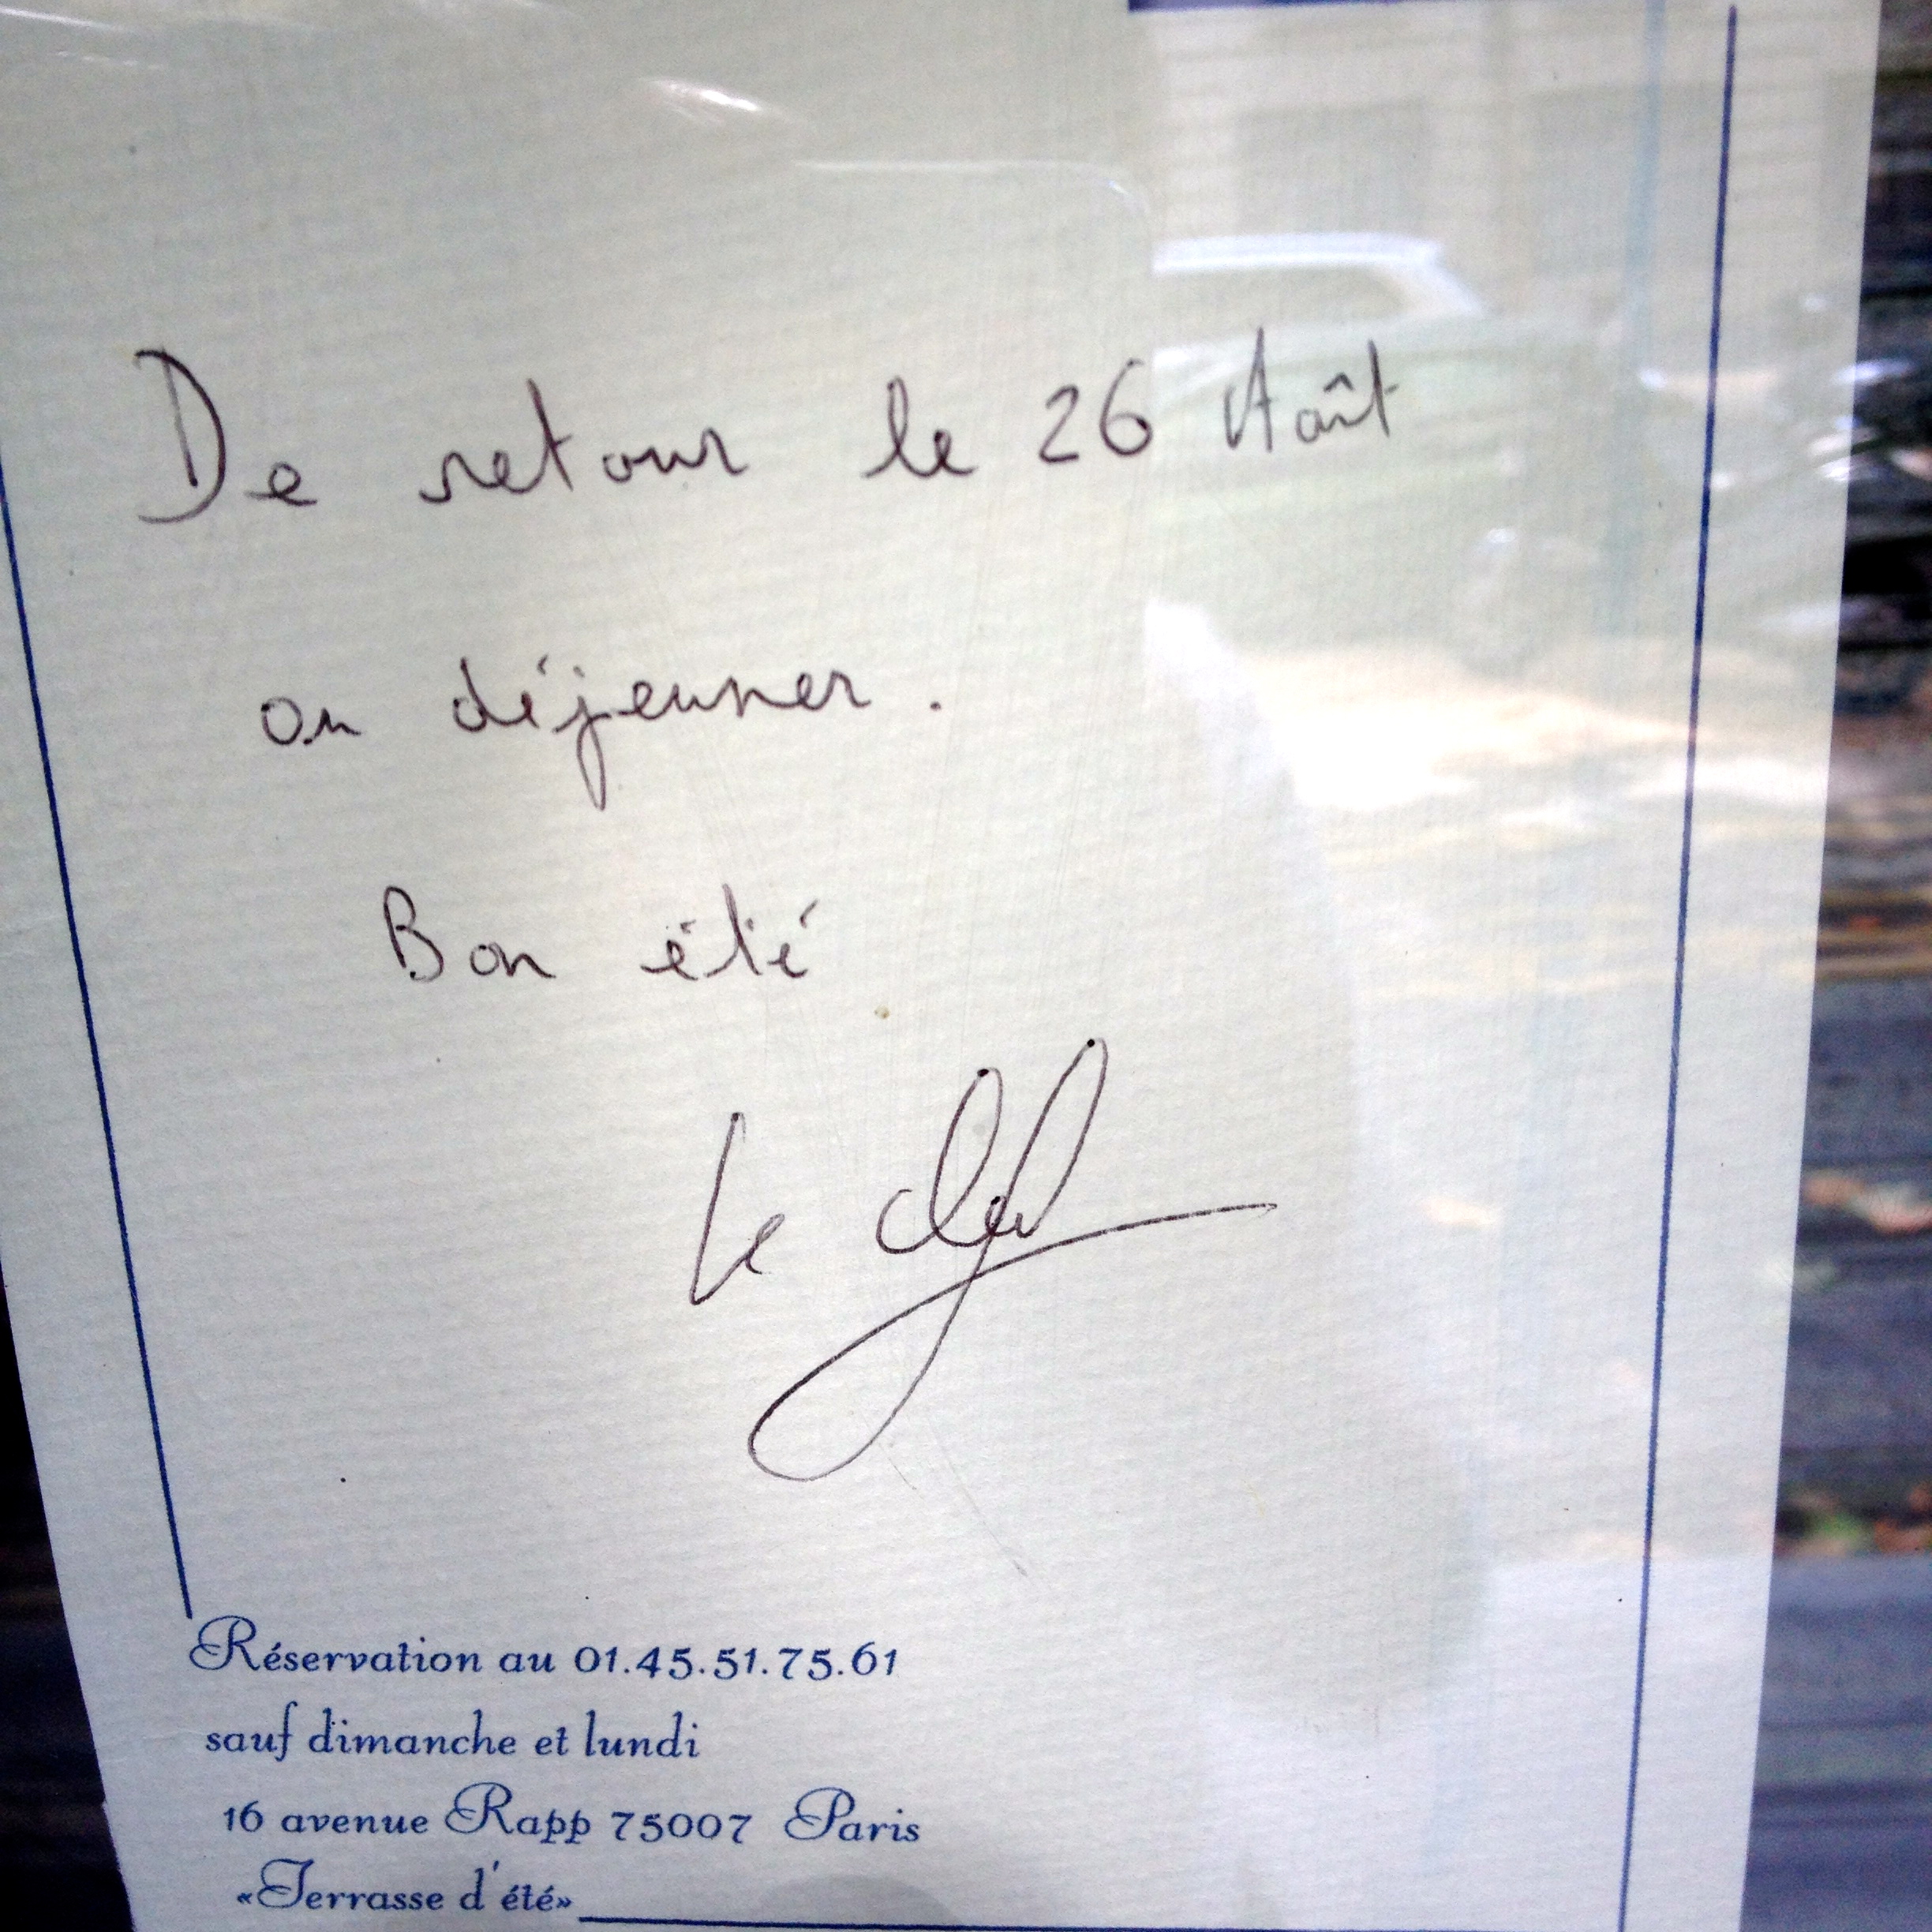 De retour le 26 Août
au déjeuner.
Bon été
le chef
Réservation au 01.45.51.75.61
sauf dimanche et lundi
16 avenue Rapp 75007 Paris
«Terrasse d'été»